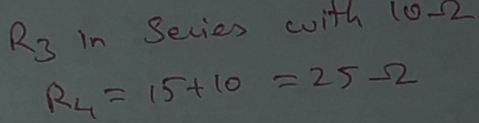 R₃ in Series with 10Ω
R₄ = 15+10 = 25Ω